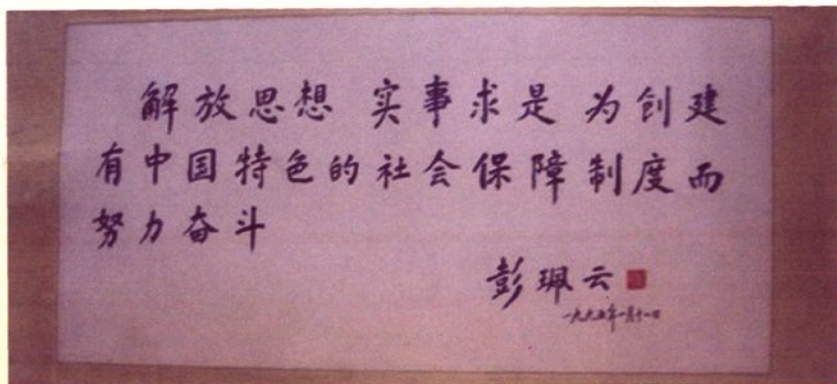 解放思想 实事求是 为创建
有中国特色的社会保障制度而
努力奋斗
彭珮云
一九九五年一月十一日